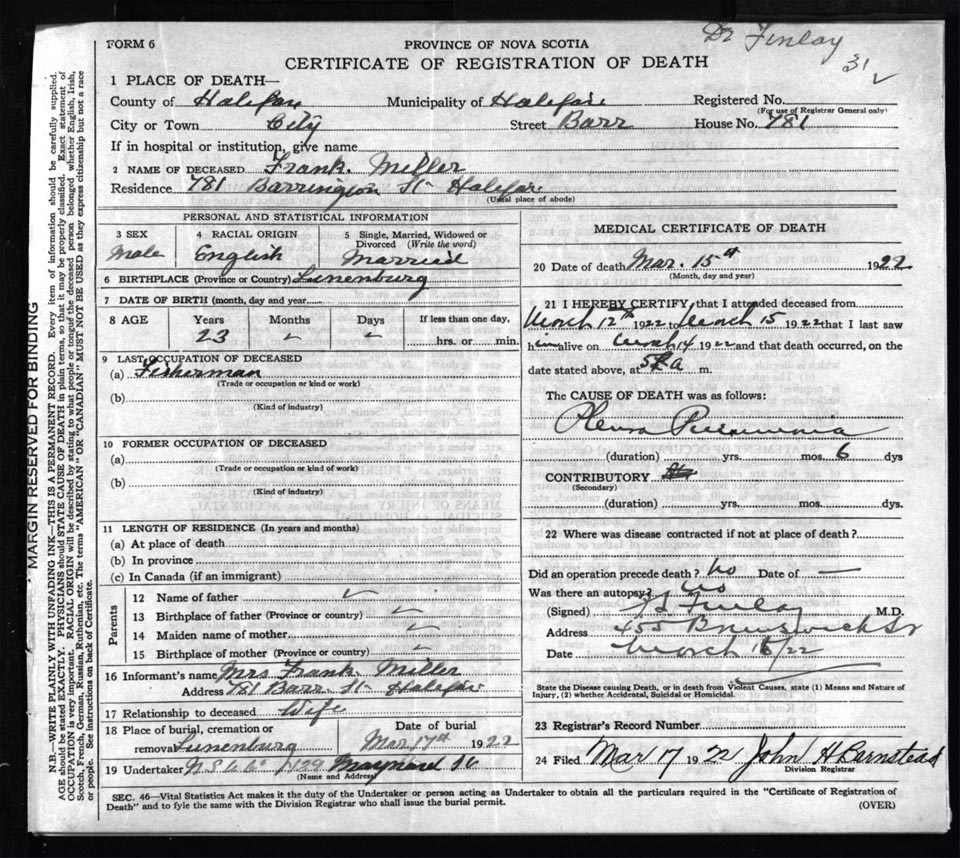 Dr Finlay
31 ✓
FORM 6
PROVINCE OF NOVA SCOTIA
CERTIFICATE OF REGISTRATION OF DEATH
1 PLACE OF DEATH—
County of Halifax Municipality of Halifax Registered No.
(For use of Registrar General only)
City or Town City Street Barr House No. 781
If in hospital or institution, give name
2 NAME OF DECEASED Frank. Miller
Residence 781 Barrington St Halifax
(Usual place of abode)
PERSONAL AND STATISTICAL INFORMATION
3 SEX
Male
4 RACIAL ORIGIN
English
5 Single, Married, Widowed or
Divorced (Write the word)
Married
6 BIRTHPLACE (Province or Country) Lunenburg
7 DATE OF BIRTH (month, day and year
8 AGE Years Months Days If less than one day,
23 ✓ ✓ hrs. or min.
9 LAST OCCUPATION OF DECEASED
(a) Fisherman
(Trade or occupation or kind or work)
(b)
(Kind of industry)
10 FORMER OCCUPATION OF DECEASED
(a)
(Trade or occupation or kind of work)
(b)
(Kind of industry)
11 LENGTH OF RESIDENCE (In years and months)
(a) At place of death
(b) In province
(c) In Canada (if an immigrant)
Parents
12 Name of father ✓
13 Birthplace of father (Province or country) ✓
14 Maiden name of mother ✓
15 Birthplace of mother (Province or country) ✓
16 Informant's name Mrs Frank. Miller
Address 781 Barr. St Halifax
17 Relationship to deceased Wife
18 Place of burial, cremation or
removal Lunenburg
Date of burial
Mar 17th 1922
19 Undertaker N S U Co Maynard St
(Name and Address)
MEDICAL CERTIFICATE OF DEATH
20 Date of death Mar. 15th 1922
(Month, day and year)
21 I HEREBY CERTIFY, that I attended deceased from
March 12th 1922 to March 15 1922 that I last saw
him alive on March 14 1922 and that death occurred, on the
date stated above, at 5 a m.
The CAUSE OF DEATH was as follows:
Pleuro Pneumonia
(duration) yrs. mos. 6 dys
CONTRIBUTORY
(Secondary)
(duration) yrs. mos. dys.
22 Where was disease contracted if not at place of death?
Did an operation precede death? No Date of —
Was there an autopsy? No
(Signed) Finlay M.D.
Address 455 Brunswick St
Date March 16/22
State the Disease causing Death, or in death from Violent Causes, state (1) Means and Nature of
Injury, (2) whether Accidental, Suicidal or Homicidal.
23 Registrar's Record Number
24 Filed Mar 17 1922 John H Barnstead
Division Registrar
SEC. 46—Vital Statistics Act makes it the duty of the Undertaker or person acting as Undertaker to obtain all the particulars required in the "Certificate of Registration of
Death" and to fyle the same with the Division Registrar who shall issue the burial permit.
(OVER)
MARGIN RESERVED FOR BINDING
N.B.—WRITE PLAINLY WITH UNFADING INK—THIS IS A PERMANENT RECORD. Every item of information should be carefully supplied.
AGE should be stated EXACTLY. PHYSICIANS should STATE CAUSE OF DEATH in plain terms, so that it may be properly classified. Exact statement of
OCCUPATION is very important. RACIAL ORIGIN will be described by stating to what people or tongue the deceased person belonged whether English, Irish,
Scotch, French, German, Russian, Ruthenian, etc. The terms "AMERICAN" OR "CANADIAN" MUST NOT BE USED as they express citizenship but not a race
or people. See instructions on back of Certificate.